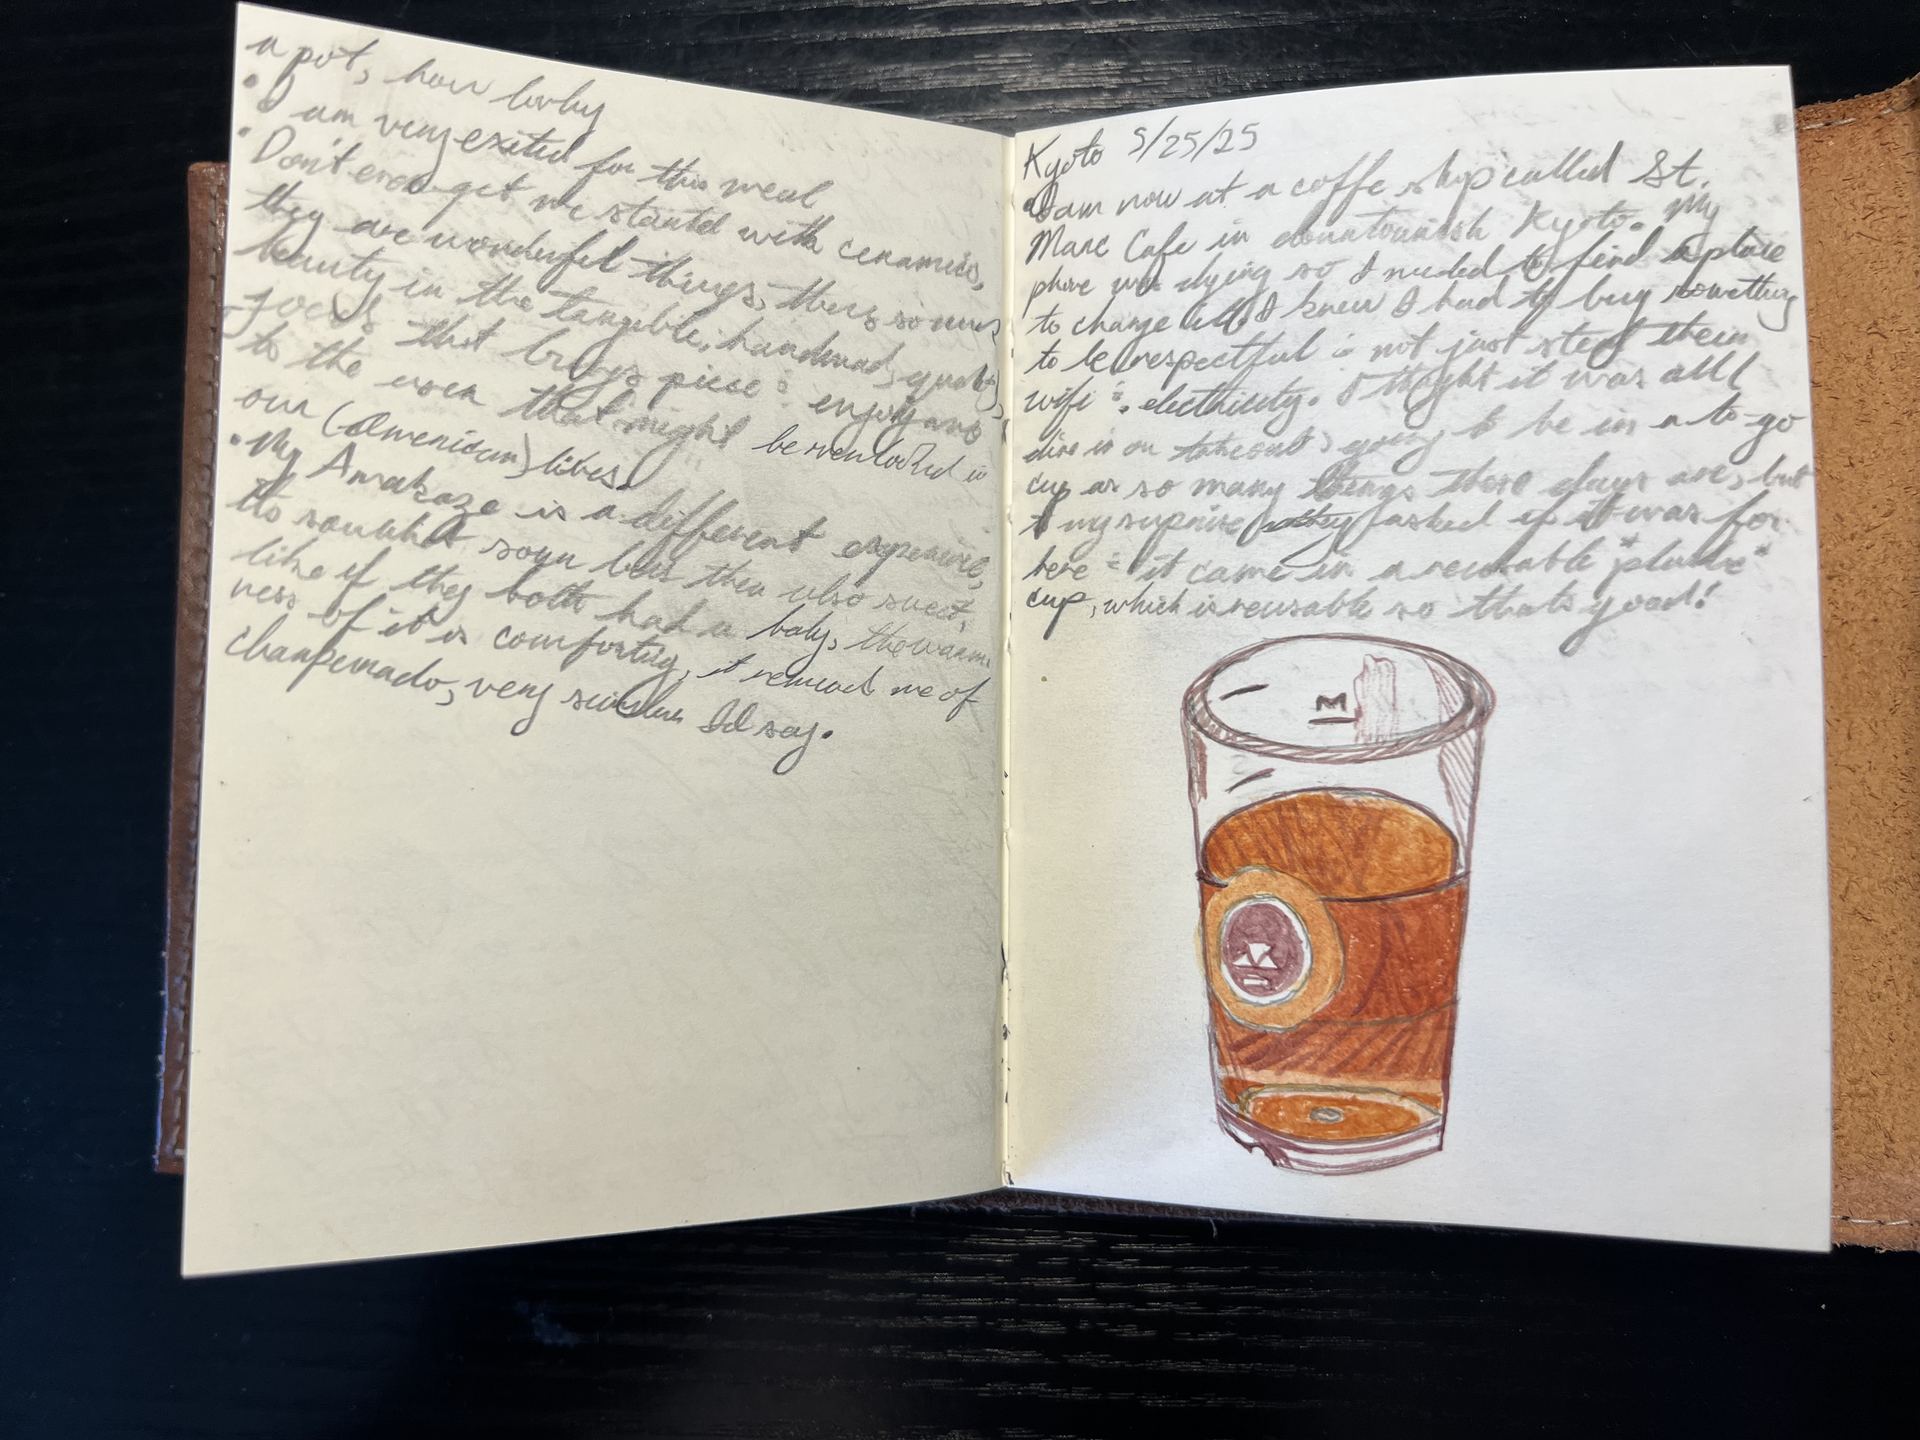 a pot, how lovly
• I am very exited for this meal
• Don't even get me started with ceramics,
they are wonderful things, theres so much
beauty in the tangible, handmad, quality
focus that brings piece & enjoyment
to the user that might be overlooked in
our (American) lives.
• My Amakaze is a different experience,
its somewhat soyu bean then also sweet,
like if they both had a baby, the warm
ness of it is comforting, it reminds me of
Champurrado, very similar Id say.
Kyoto 5/25/25
• I am now at a coffe shop called St.
Marc Cafe in downtownish Kyoto. My
phone was dying so I needed to find a place
to charge it & I knew I had to buy something
to be respectful & not just steal their
wifi & electricity. I thought it was all
dine in or takeout, going to be in a to-go
cup as so many things these days are, but
to my suprise they asked if it was for
here & it came in a reusable *plastic*
cup, which is reusable so thats good!
M